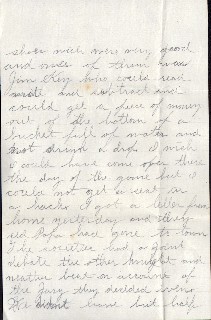 show wich were very good
and one of them was
Jim Key who could read
wrote and subtract and
could get a piece of money
out of the bottom of a
bucket full of water and
not drink a drop. I wish
I could have come over there
the day of the game but I
could not get a seat in
a hack. I got a letter from
home yesterday and they
said Papa had gone to town
The societies had a joint
debate the other knight and
neather beat on account of
the Jury they decided
We have but half